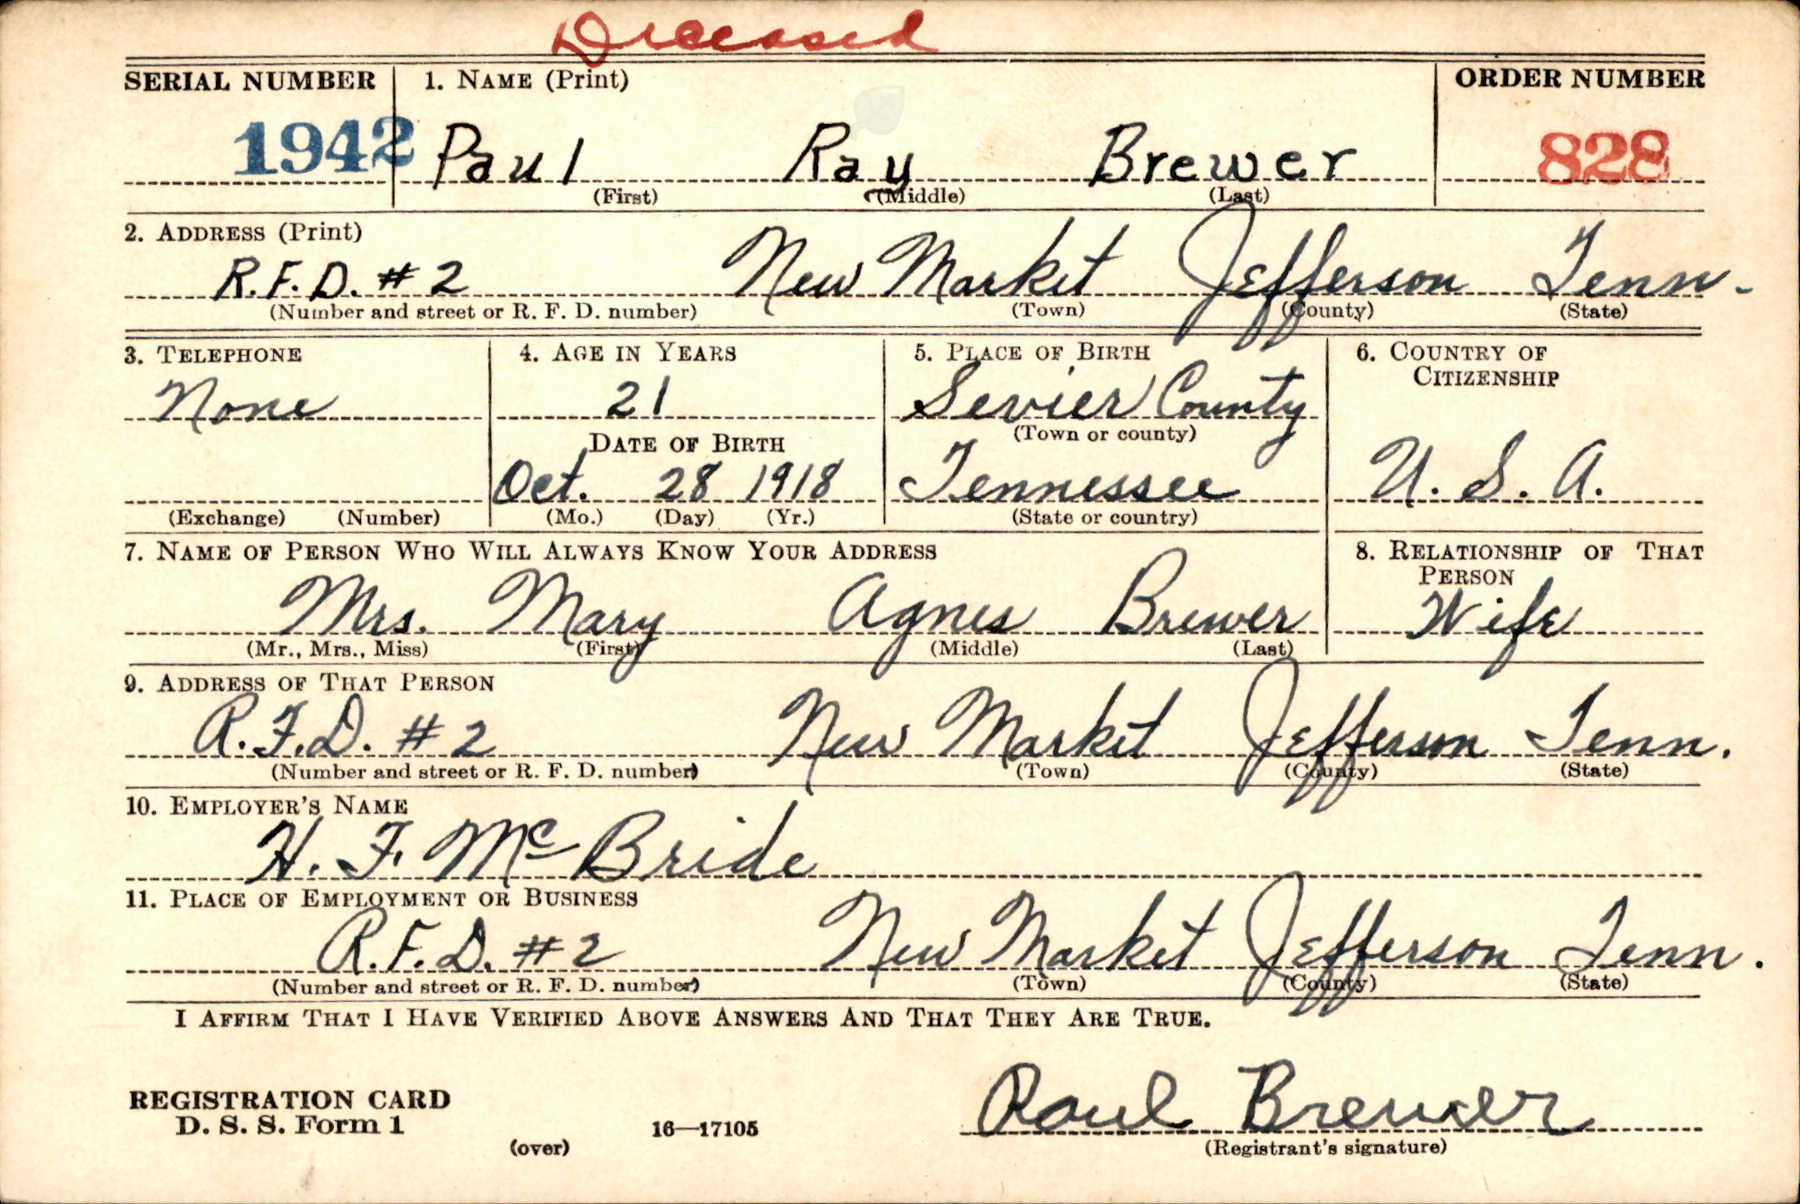 Deceased
SERIAL NUMBER 1. NAME (Print) ORDER NUMBER
1942 Paul Ray Brewer 828
(First) (Middle) (Last)
2. ADDRESS (Print)
R.F.D. #2 New Market Jefferson Tenn.
(Number and street or R. F. D. number) (Town) (County) (State)
3. TELEPHONE 4. AGE IN YEARS 5. PLACE OF BIRTH 6. COUNTRY OF CITIZENSHIP
None 21 Sevier County
DATE OF BIRTH (Town or county)
Oct. 28 1918 Tennessee U. S. A.
(Exchange) (Number) (Mo.) (Day) (Yr.) (State or country)
7. NAME OF PERSON WHO WILL ALWAYS KNOW YOUR ADDRESS 8. RELATIONSHIP OF THAT PERSON
Mrs. Mary Agnes Brewer Wife
(Mr., Mrs., Miss) (First) (Middle) (Last)
9. ADDRESS OF THAT PERSON
R.F.D. #2 New Market Jefferson Tenn.
(Number and street or R. F. D. number) (Town) (County) (State)
10. EMPLOYER'S NAME
H. F. McBride
11. PLACE OF EMPLOYMENT OR BUSINESS
R.F.D. #2 New Market Jefferson Tenn.
(Number and street or R. F. D. number) (Town) (County) (State)
I AFFIRM THAT I HAVE VERIFIED ABOVE ANSWERS AND THAT THEY ARE TRUE.
REGISTRATION CARD
D. S. S. Form 1 16—17105 Paul Brewer
(over) (Registrant's signature)